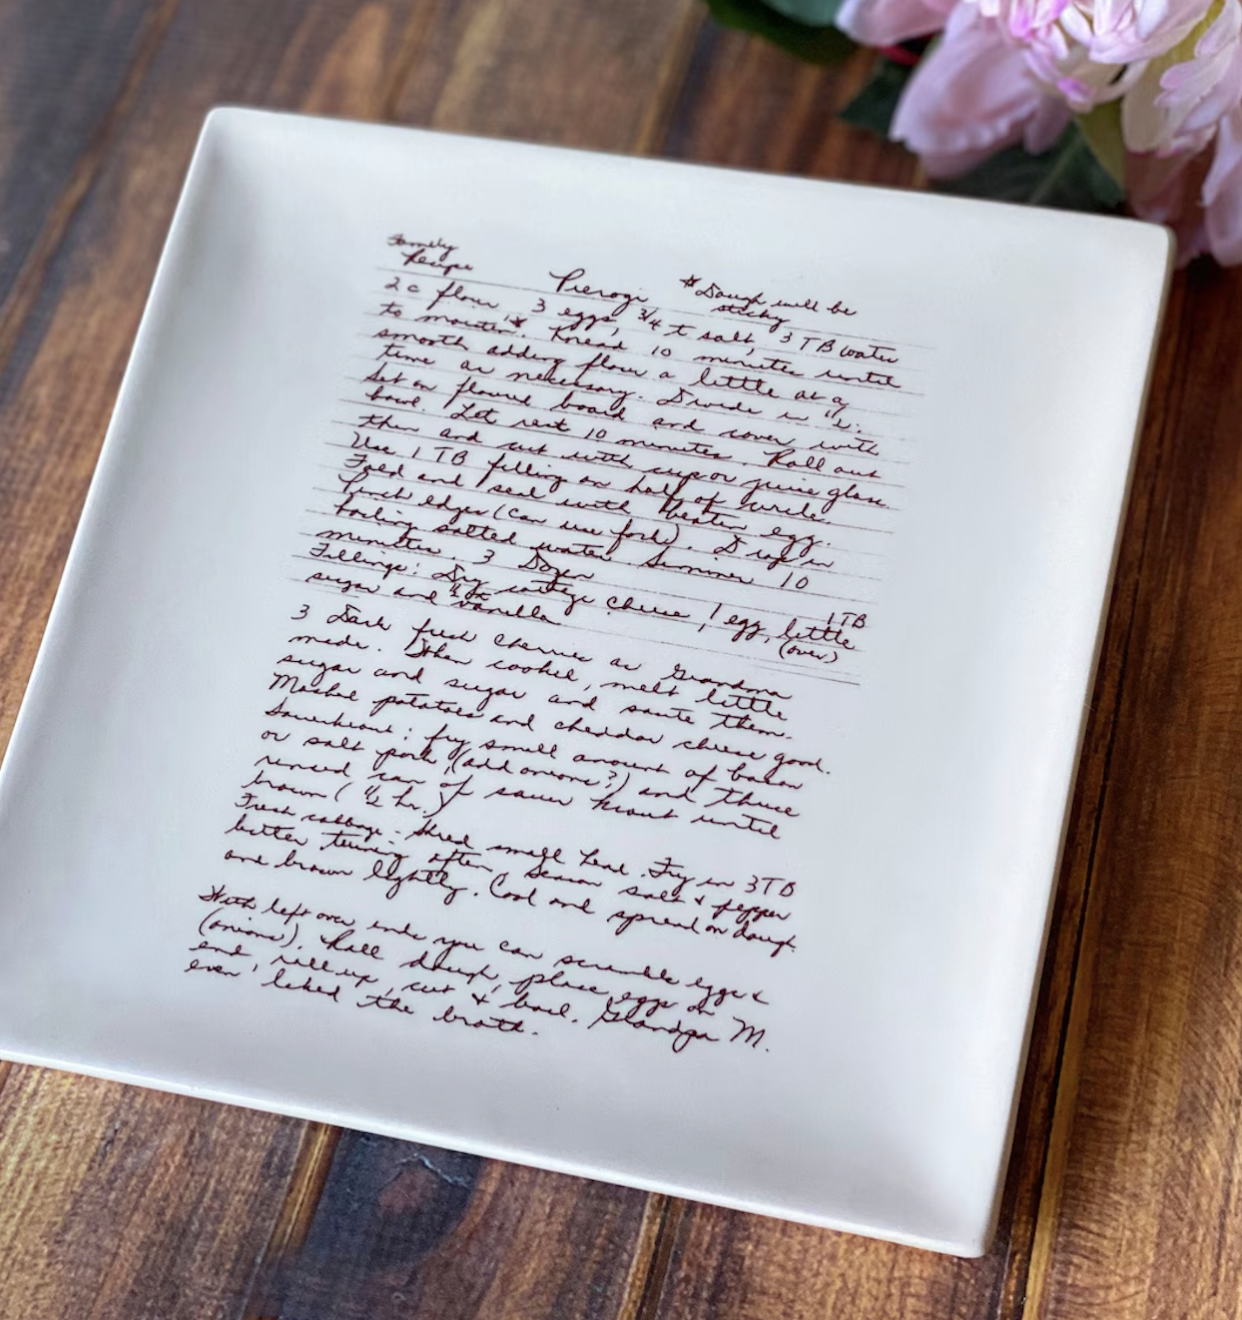 Family
Recipe
Pierogi
*Dough will be
sticky
2 c flour, 3 eggs, 3/4 t salt, 3 TB water
to moisten.* Knead 10 minutes until
smooth adding flour a little at a
time as necessary. Divide in 1/2.
Set on floured board and cover with
bowl. Let rest 10 minutes. Roll out
thin and cut with cup or juice glass.
Use 1 TB filling on half of circle.
Fold and seal with beaten egg.
Pinch edges (can use fork). Drop in
boiling salted water. Simmer 10
minutes. 3 Dozen
Fillings: Dry cottage cheese, 1 egg, little 1 TB
sugar and vanilla (over)
3 Dark fresh cherries as Grandma
made. When cooked, melt little
sugar and sugar and saute them.
Mashed potatoes and cheddar cheese good.
Sauerkraut: fry small amount of bacon
or salt pork, (add onions?) and
rinsed can of sauer kraut until
brown (1/2 hr.)
Fresh cabbage - Shred small head. Fry in 3 TB
butter turning often, season salt & pepper
and brown lightly. Cool and spread on dough.
With left over ends you can scramble eggs &
(onions). Roll dough, place eggs on
and roll up, cut & boil. Grandpa M.
even liked the broth.